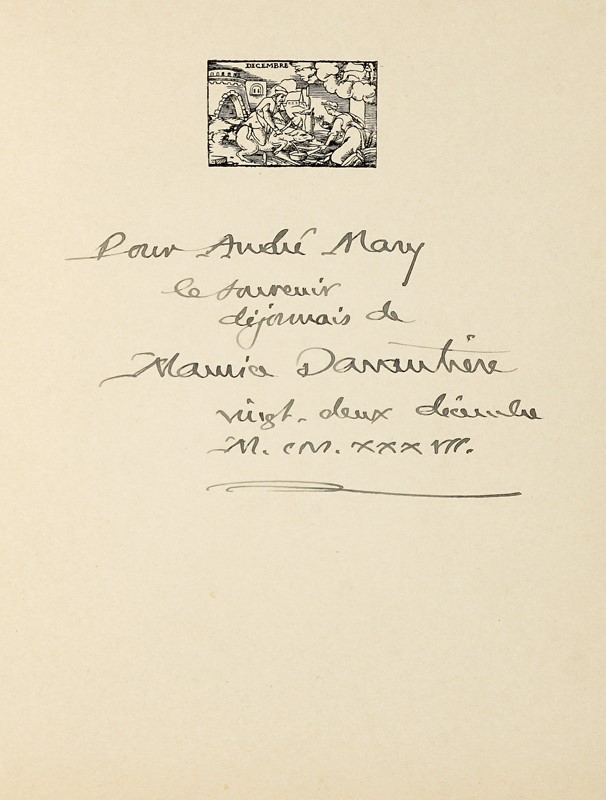 DECEMBRE
Pour André Mary
le souvenir
dijonnais de
Maurice Darantière
vingt-deux décembre
M. CM. XXXVII.